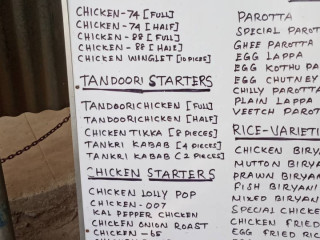 CHICKEN-74 [FULL]
CHICKEN-74 [HALF]
CHICKEN-88 [FULL]
CHICKEN-88 [HALF]
CHICKEN WINGLET [10 PIECES]
TANDOORI STARTERS
TANDOORICHICKEN [FULL]
TANDOORICHICKEN [HALF]
CHICKEN TIKKA [8 PIECES]
TANKRI KABAB [4 PIECES]
TANKRI KABAB [2 PIECES]
CHICKEN STARTERS
CHICKEN LOLLY POP
CHICKEN-007
KAL PEPPER CHICKEN
CHICKEN ONION ROAST
CHICKEN-65
PAROTTA
SPECIAL PAROT
GHEE PAROTTA
EGG LAPPA
EGG KOTHU PA
EGG CHUTNEY
CHILLY PAROTTA
PLAIN LAPPA
VEETCH PAROT
RICE-VARIETI
CHICKEN BIRY
MUTTON BIRYA
PRAWN BIRYAN
FISH BIRYANI
MIXED BIRYAN
SPECIAL CHICKE
CHICKEN FRIED
EGG FRIED RI